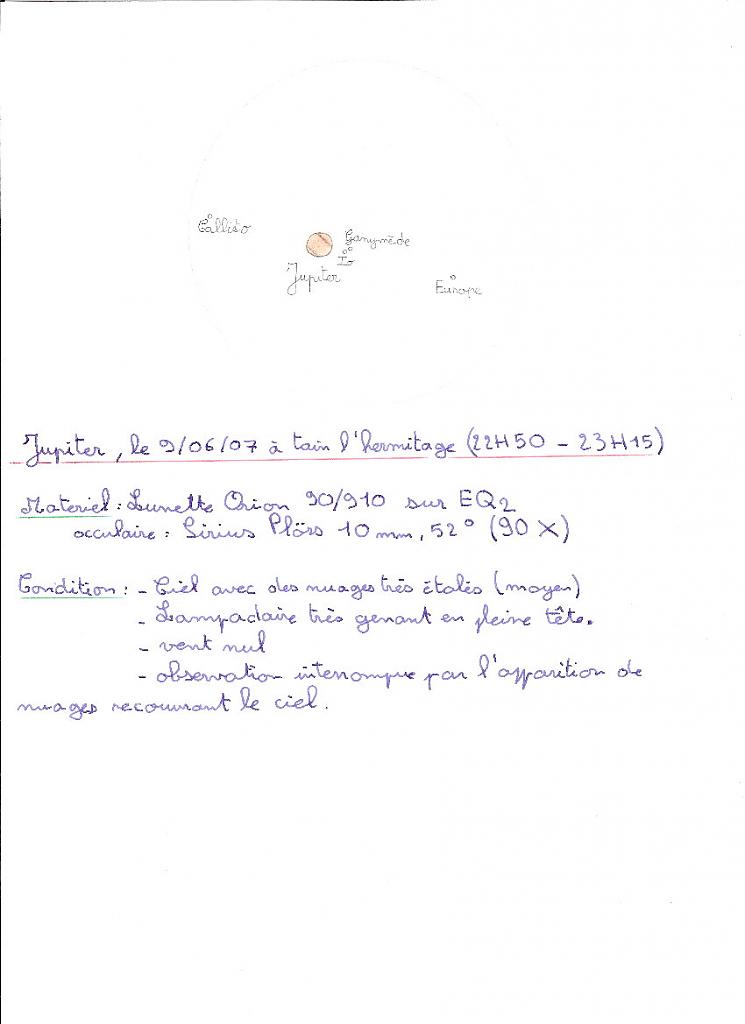 Callisto
Ganymède
Io
Jupiter
Europe
Jupiter, le 9/06/07 à tain l'hermitage (22H50 - 23H15)
Materiel : Lunette Orion 90/910 sur EQ2
occulaire : Sirius Plöss 10 mm, 52° (90 X)
Condition : - Ciel avec des nuages très étalés (moyen)
- Lampadaire très genant en pleine tête.
- vent nul
- observation interrompue par l'apparition de
nuages recouvrant le ciel.